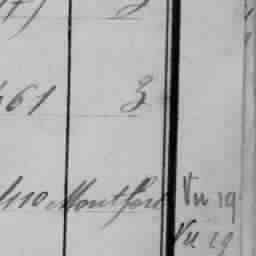 61 3
110 Montfort Vu 19
Vu 19